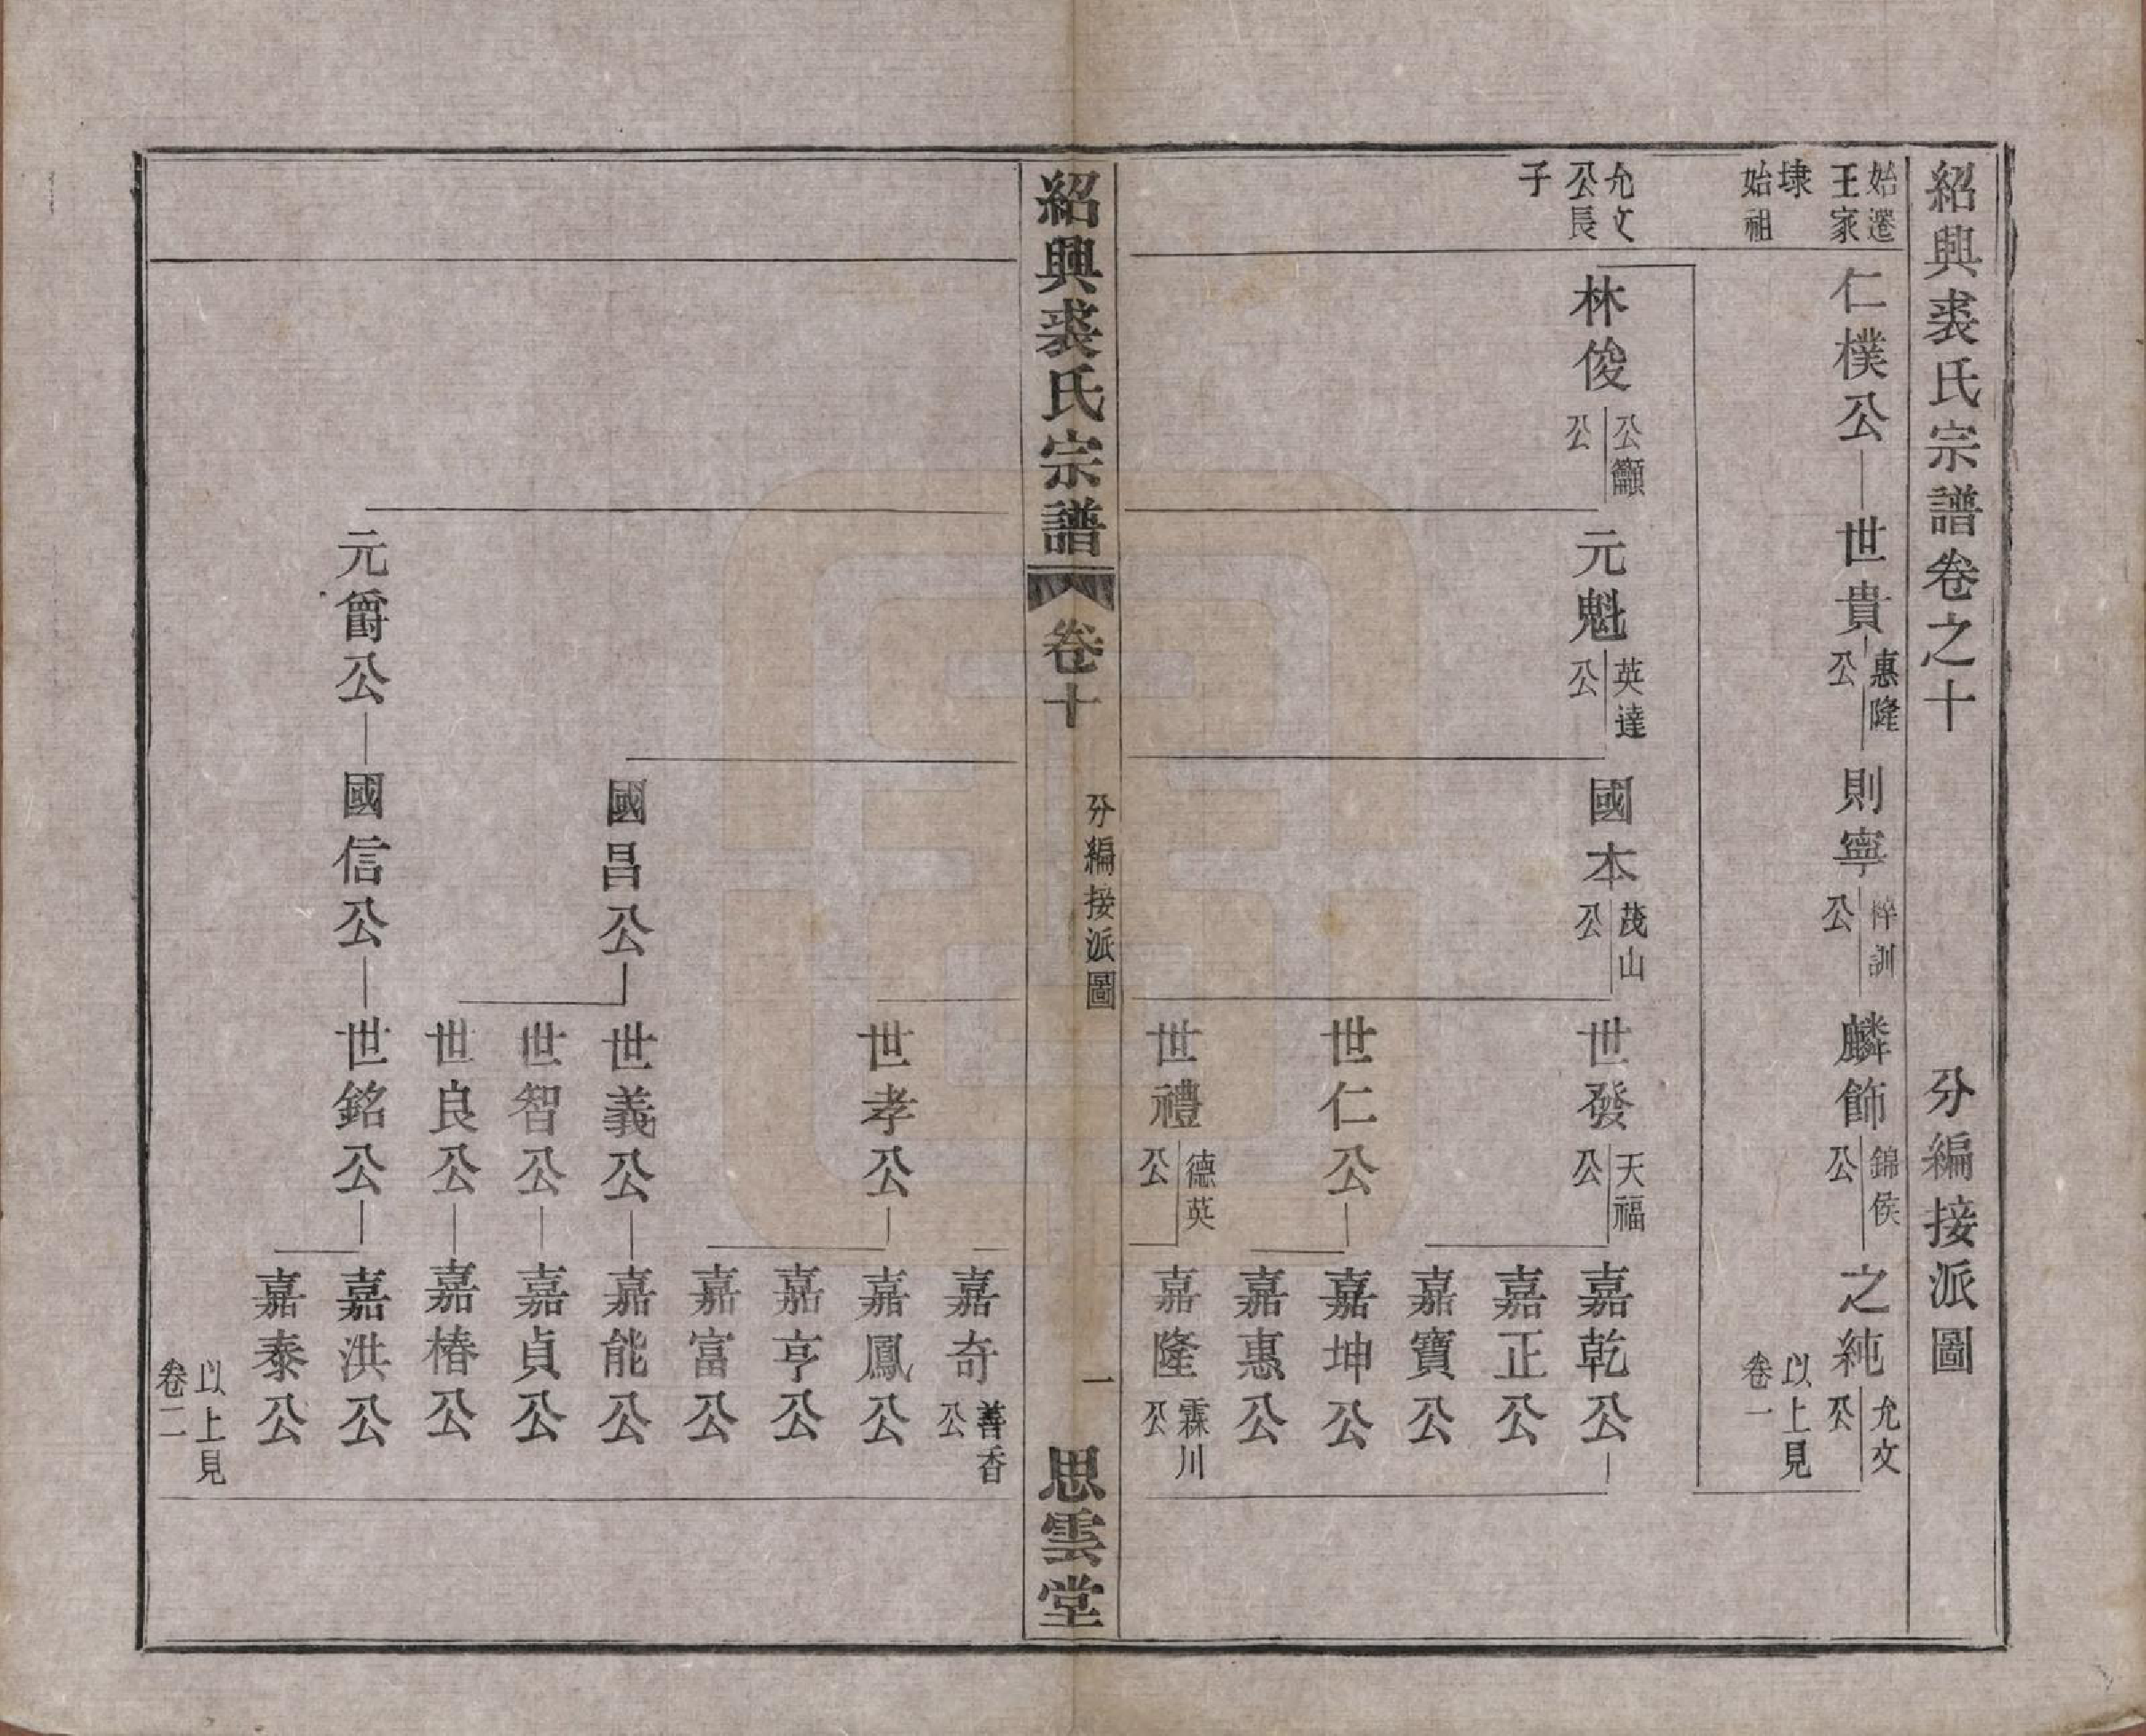 紹興裘氏宗譜卷之十
分編接派圖
始遷
王家
埭
始祖
仁樸公
世貴
惠隆
公
則寧
梓訓
公
麟飾
錦侯
公
之純
允文
公
以上見
卷一
允文
公長
子
林俊
公籲
公
元魁
英達
公
國本
茂山
公
世發
天福
公
嘉乾公
嘉正公
嘉寶公
世仁公
嘉坤公
嘉惠公
世禮
德英
公
嘉隆
霖川
公
紹興裘氏宗譜
卷十
分編接派圖
一
思雲堂
嘉奇
善香
公
世孝公
嘉鳳公
嘉亨公
嘉富公
國昌公
世義公
嘉能公
世智公
嘉貞公
世良公
嘉椿公
元爵公
國信公
世銘公
嘉洪公
嘉泰公
以上見
卷二